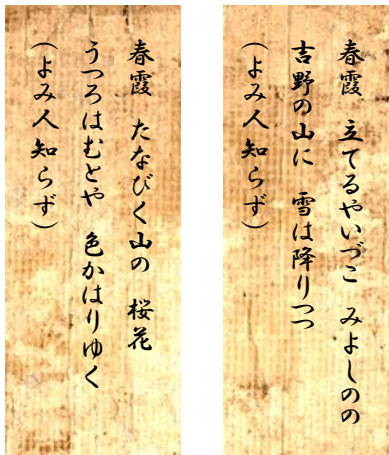 春霞 立てるやいづこ みよしのの
吉野の山に 雪は降りつつ
(よみ人知らず)
春霞 たなびく山の 桜花
うつろはむとや 色かはりゆく
(よみ人知らず)